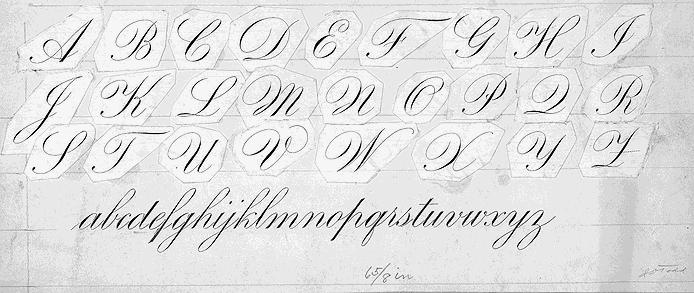 A B C D E F G H I
J K L M N O P Q R
S T U V W X Y Z
abcdefghijklmnopqrstuvwxyz
6 5/8 in